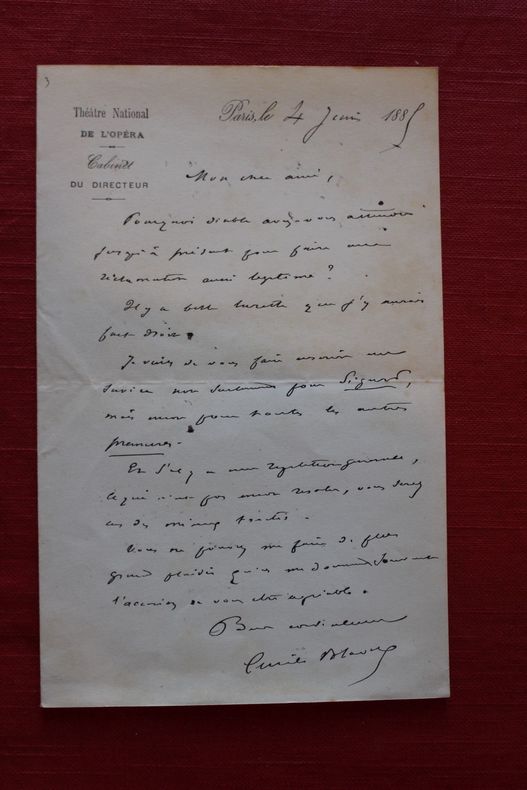 3
Théâtre National
DE L'OPÉRA
Cabinet
DU DIRECTEUR
Paris, le 4 Juin 1885
Mon cher ami,
Pourquoi diable avez-vous attendu
jusqu'à présent pour faire une
réclamation aussi légitime ?
Il y a belle lurette que j'y aurais
fait droit.
Je viens de vous faire inscrire un
service non seulement pour Sigurd,
mais encore pour toutes les autres
premières.
Et s'il y a une répétition générale,
ce qui n'est pas encore résolu, vous serez
un des mieux traités.
Vous ne pouvez me faire de plus
grand plaisir qu'en me donnant souvent
l'occasion de vous être agréable.
Bien cordialement
Emile Blavet